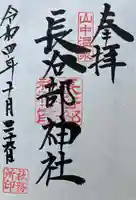 奉拝
山中温泉
長谷部神社
令和四年十月二十六日
社務所印